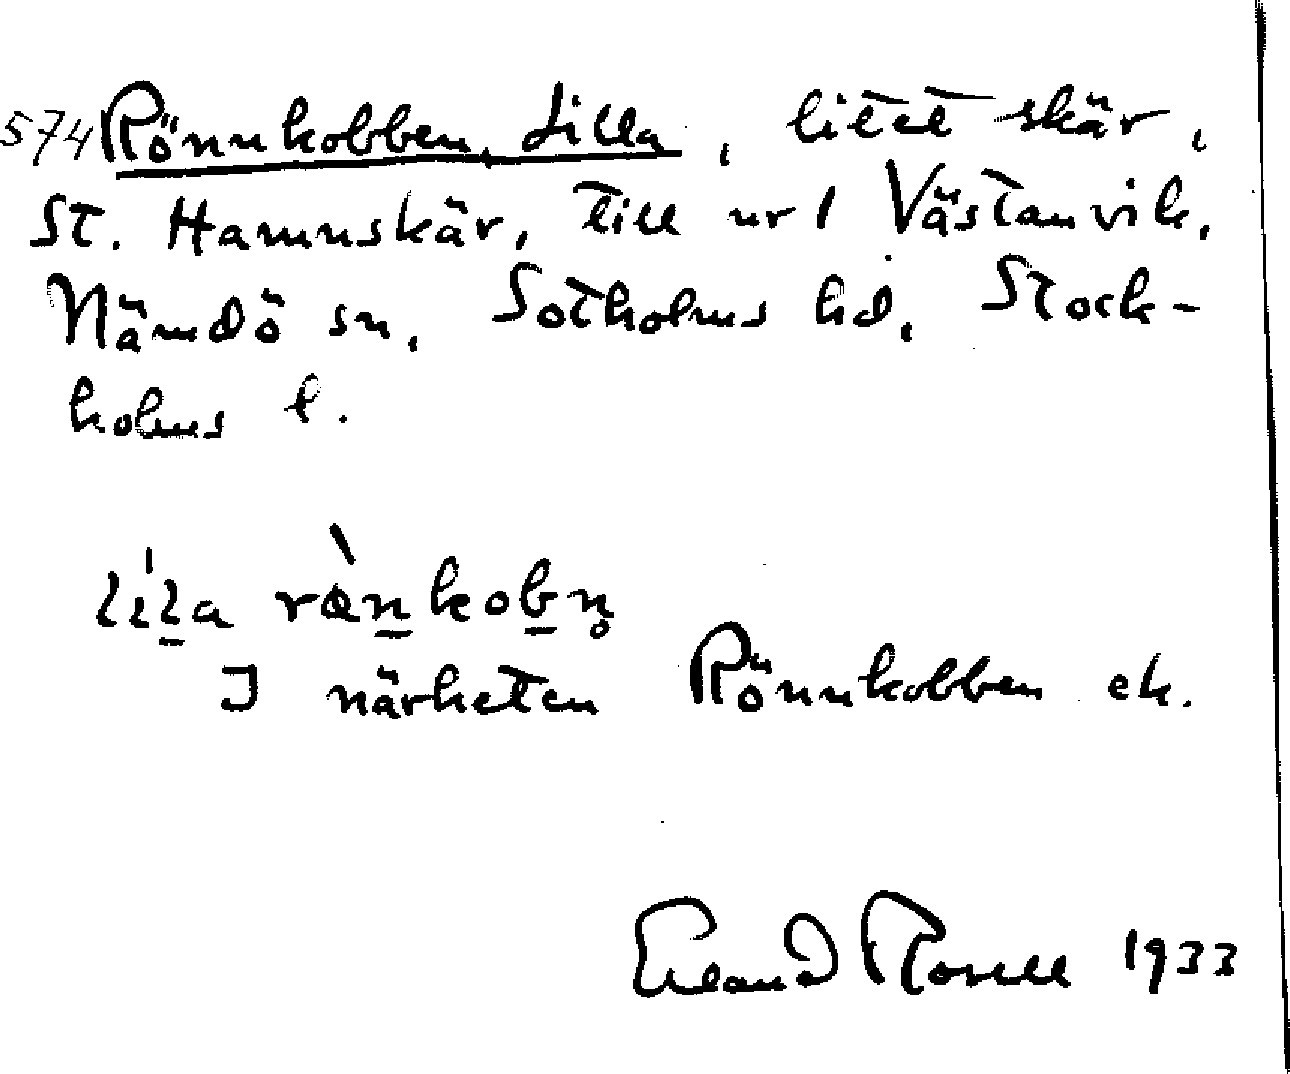 574 Rönnkobben, Lilla, litet skär,
St. Hamnskär, till nr 1 Västanvik,
Nämdö sn, Sotholms hd, Stock-
holms l.
líl̲a rœ̀n̲kob̲n̥
I närheten Rönnkobben ek.
Erland Rosell 1933